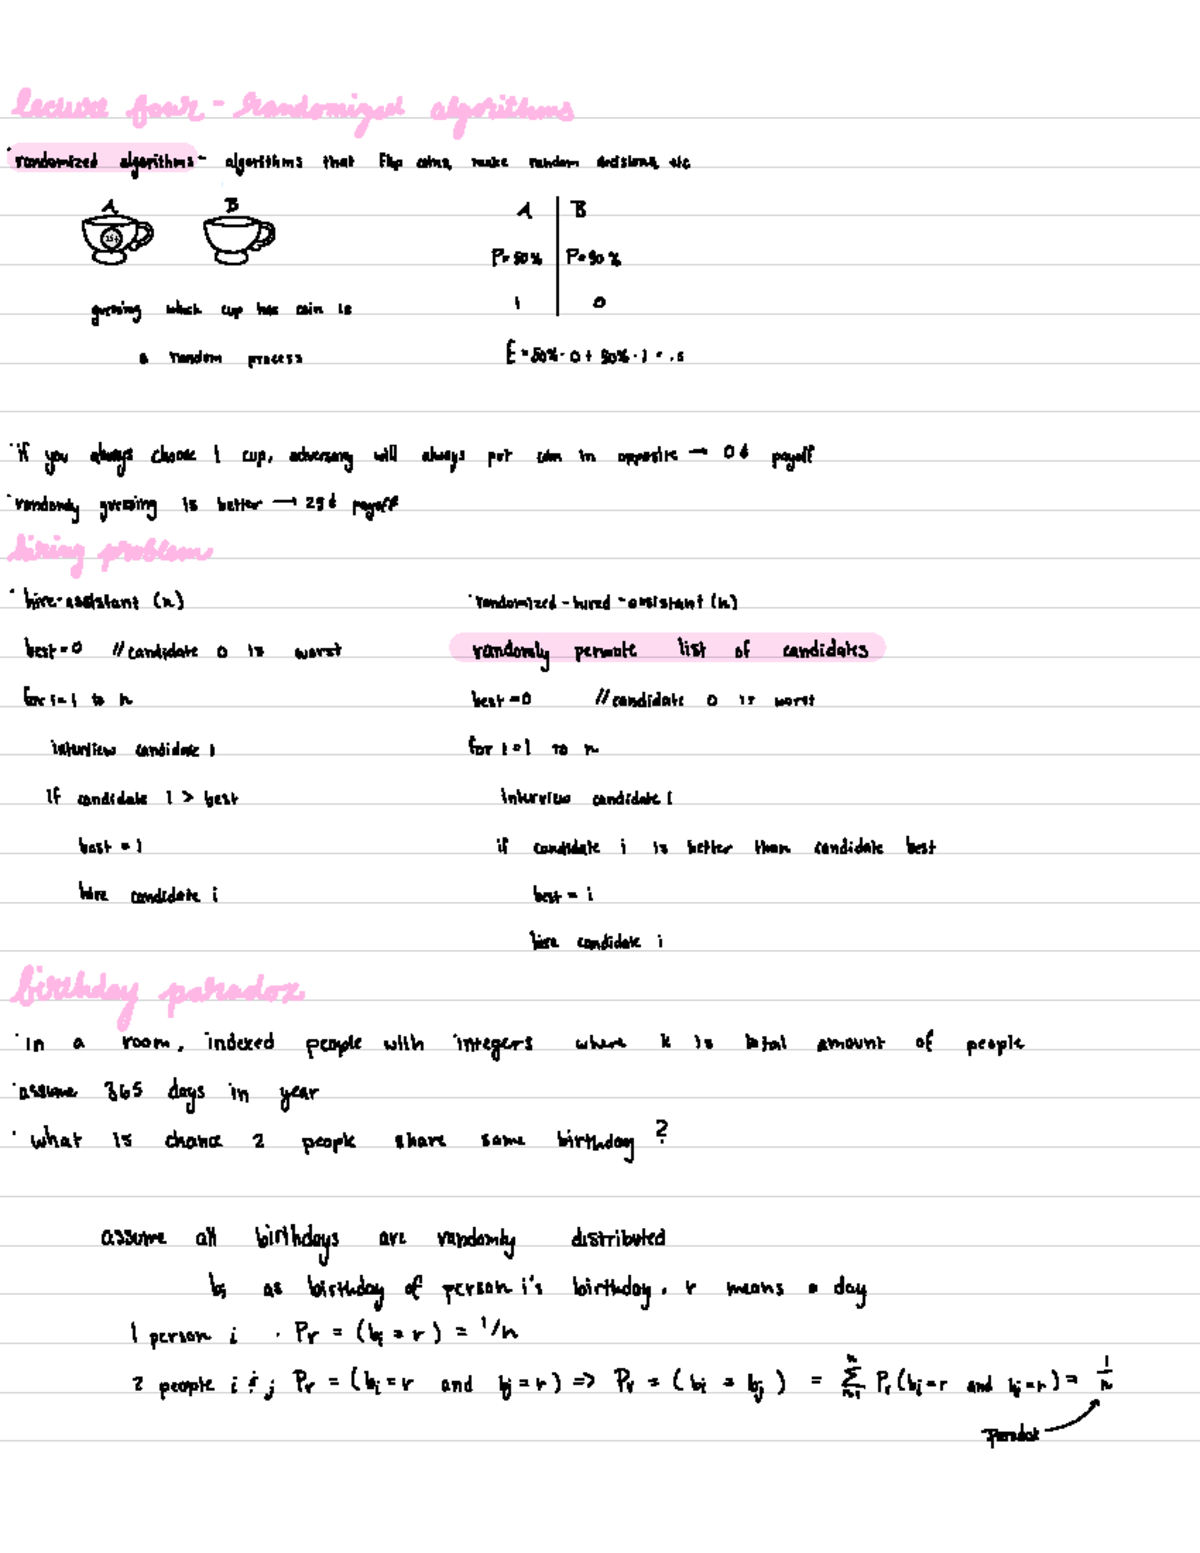 lecture four - randomized algorithms
· randomized algorithms - algorithms that flip coins, make random decisions, etc
A B A B
25¢ P=50% P=50%
guessing which cup has coin is 1 0
a random process E=50%·0+50%·1=.5
· if you always choose 1 cup, adversary will always put coin in opposite → 0¢ payoff
· randomly guessing is better → 25¢ payoff
hiring problem
· hire-assistant (n) · randomized-hired-assistant (n)
best=0 //candidate 0 is worst randomly permute list of candidates
for i=1 to n best=0 //candidate 0 is worst
interview candidate i for i=1 to n
if candidate i > best interview candidate i
best = i if candidate i is better than candidate best
hire candidate i best = i
hire candidate i
birthday paradox
· in a room, indexed people with integers where k is total amount of people
· assume 365 days in year
· what is chance 2 people share same birthday?
assume all birthdays are randomly distributed
bi as birthday of person i's birthday, r means a day
1 person i · Pr = (bi = r) = 1/n
2 people i & j Pr = (bi = r and bj = r) => Pr = (bi = bj) = n∑r=1 Pr(bi=r and bj=r) = 1/n
paradox